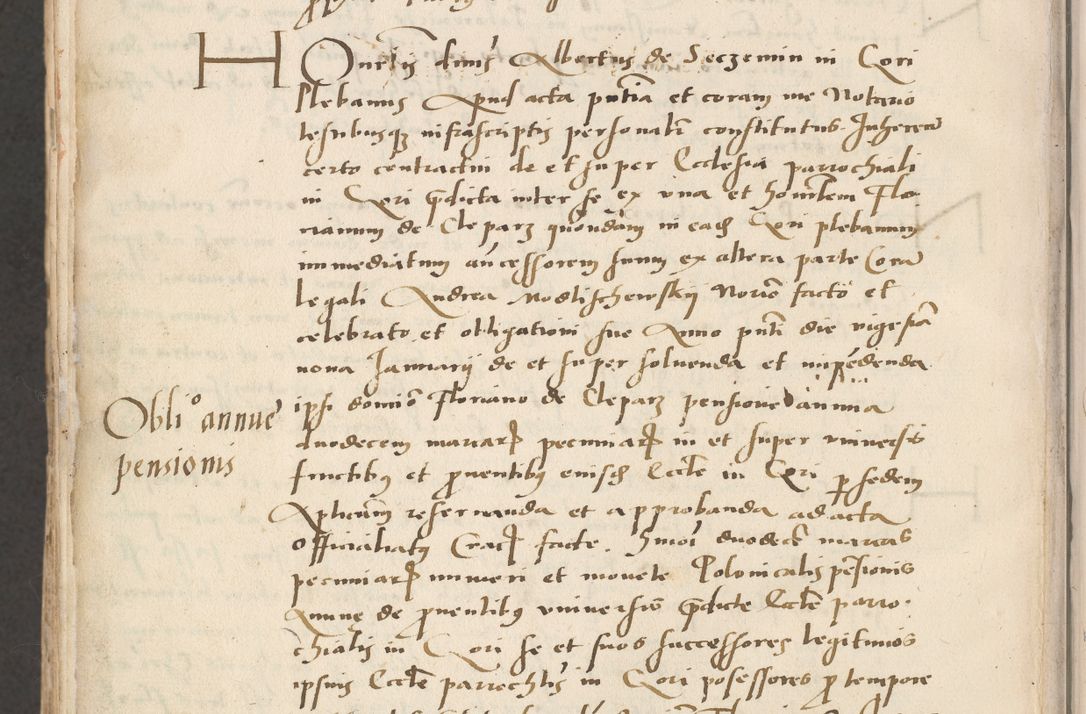 Honrlis dnus Albertus de Seczemin in Cori
plebanus Apud acta pntia et coram me Notario
testibusqz infrascriptis personalr constitutus. Inherens
certo contractui de et super Ecclesia parrochiali
in Cori pdicta inter se ex vna et honrlem Flo
rianum de Cleparz quondam in eadz Cori plebanum
immediatum ancessorem suum ex altera parte Cora
legali Andrea Modlischewskij Norio facto et
celebrato et obligationi sue Anno pnti die vigesia
nona Januarij de et super soluenda et impedenda
ipsi domio Floriano de Cleparz pensione annua
Oblio annue
pensionis
duodecem marcar pecuniar in et super vniversis
fructibus et prouentibus eiusdz Eccle in Cori per sedem
Aplicam reseruanda et approbanda ad acta
officialiatus Crac facte. Hmoi duodece marcas
pecuniar numeri et monete Polonicalis pensionis
Annue de prouentibus vniuersis pdicte Eccle parro
chialis in Cori se et suos successores legitimos
ipsius Eccle parrochlis in Cori possessores pro tempore